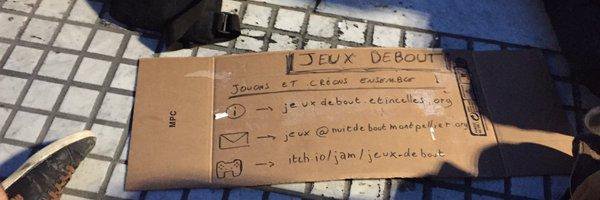 JEUX DEBOUT
JOUONS ET CRÉONS ENSEMBLE !
i → jeuxdebout.etincelles.org
→ jeux@nuitdeboutmontpellier.org
→ itch.io/jam/jeux-debout
MPC